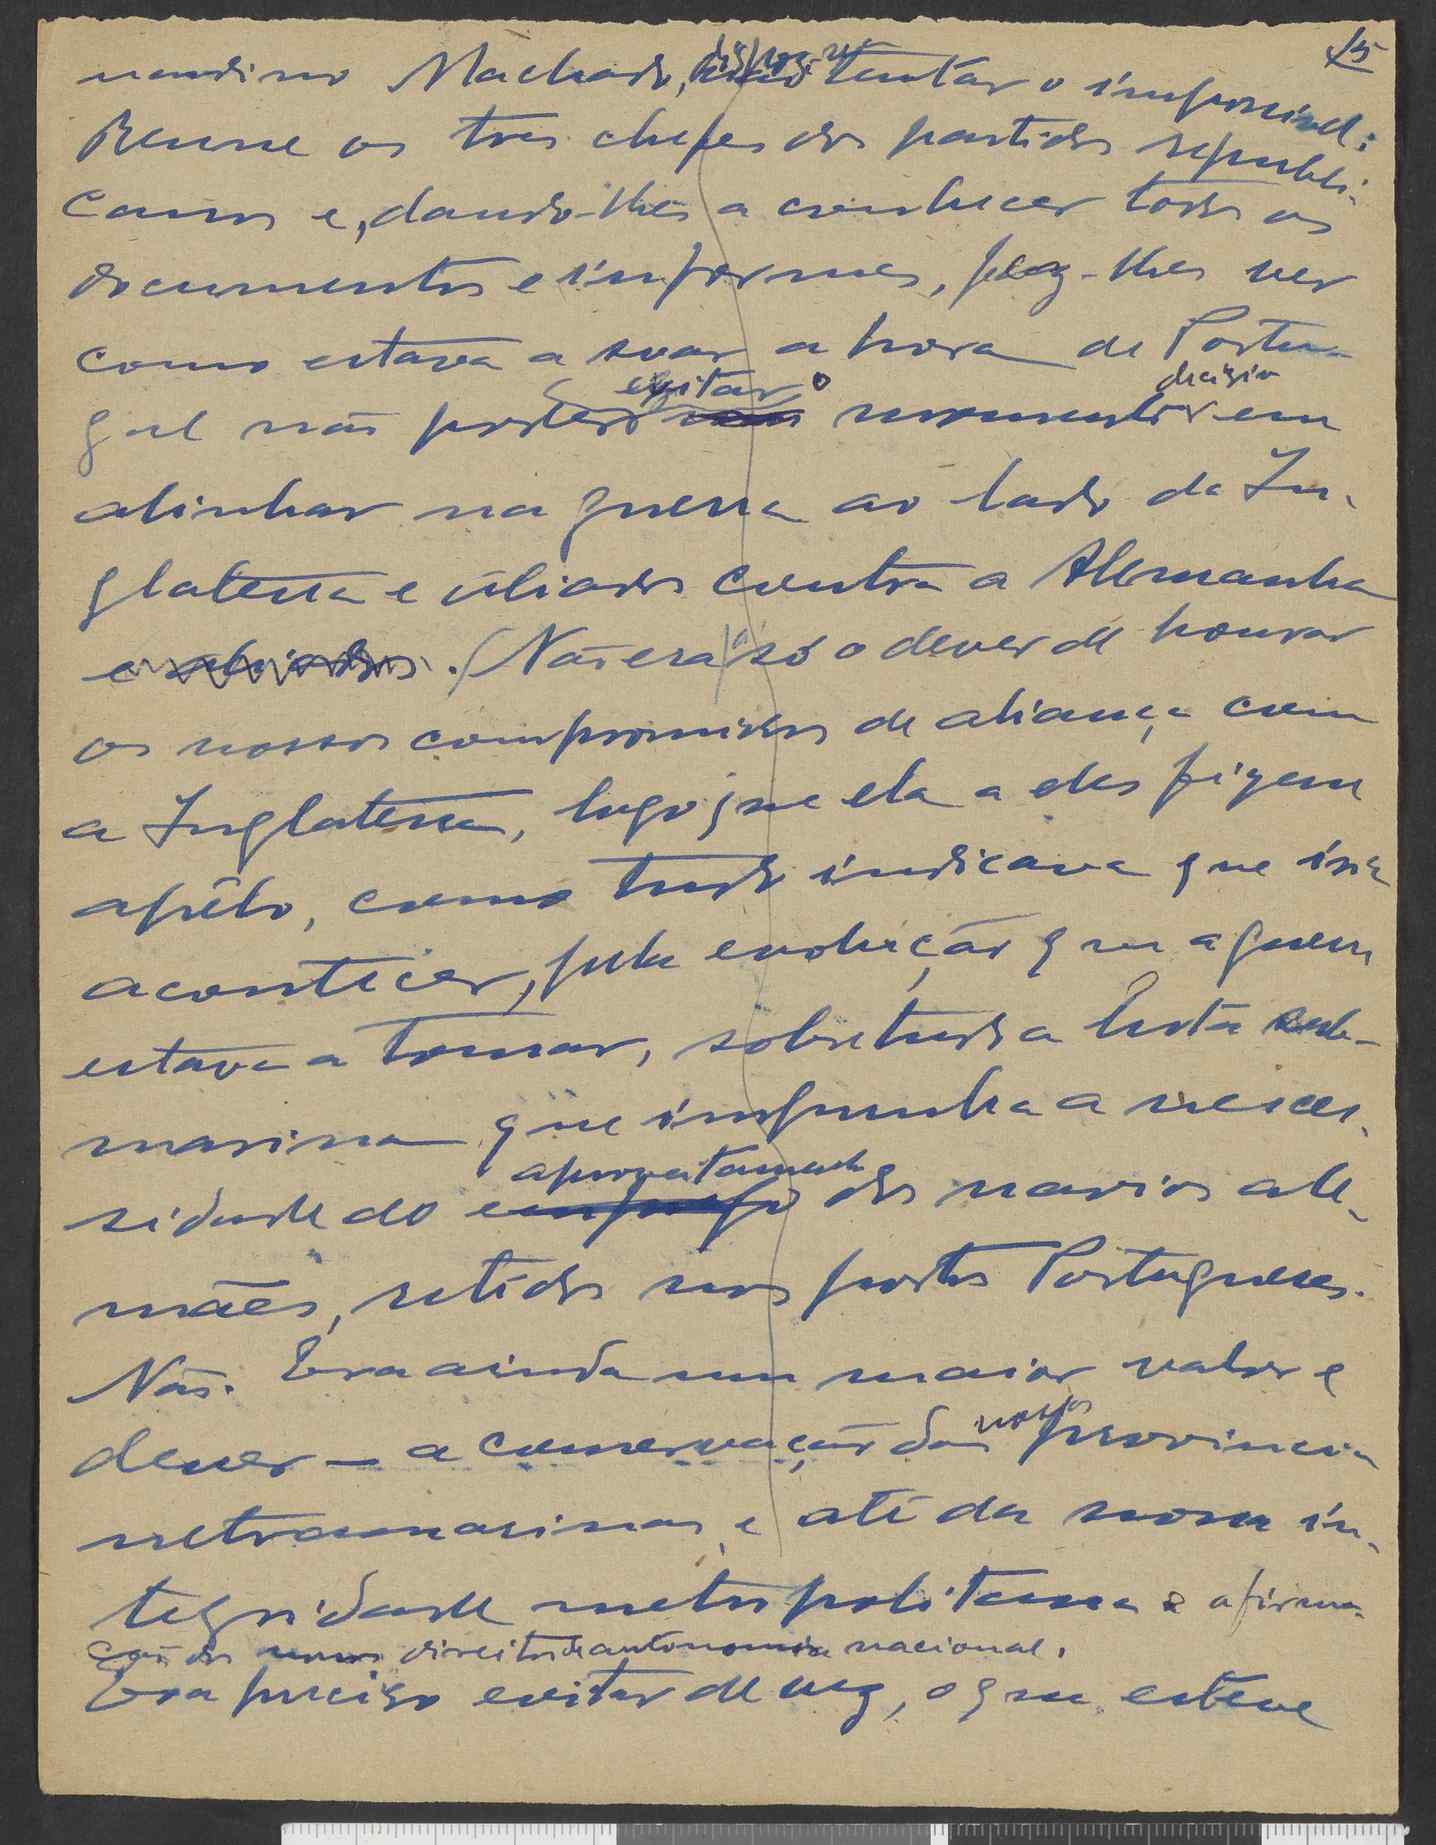 15
nardino Machado, dispoz-se tentar o impossivel:
Reune os tres chefes dos partidos republi-
canos e, dando-lhes a conhecer todos os
documentos e informes, faz-lhes ver
como estava a soar a hora de Portu-
gal não poder evitar o momento decisivo em
alinhar na guerra ao lado da In-
glaterra e aliados contra a Alemanha
e aliados. Não era já só o dever de honrar
os nossos compromissos de aliança com
a Inglaterra, logo que ela a eles fizesse
apêlo, como tudo indicava que iria
acontecer, pela evolução que a guerra
estava a tomar, sobretudo a luta sub-
marina que impunha a neces-
sidade do emprego aproveitamento dos navios ale-
mães, retidos nos portos Portugueses.
Não. Era ainda um maior valor e
dever – a conservação das nossas provincias
ultramarinas, e até da nossa in-
tegridade metropolitana e afirma-
ção dos nossos direitos de autonomia nacional.
Era preciso evitar de vez, o que esteve